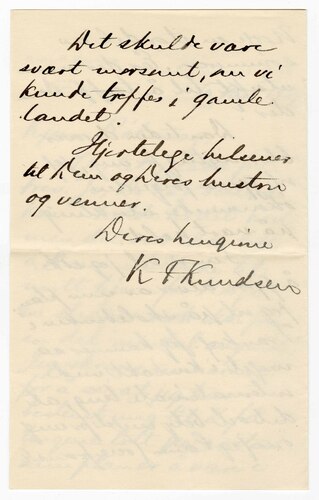 Det skulde være
svært morsomt, om vi
kunde treffes i gamle
landet.
Hjertelege hilsener
til Dem og Deres hustru
og venner.
Deres hengivne
K T Knudsen